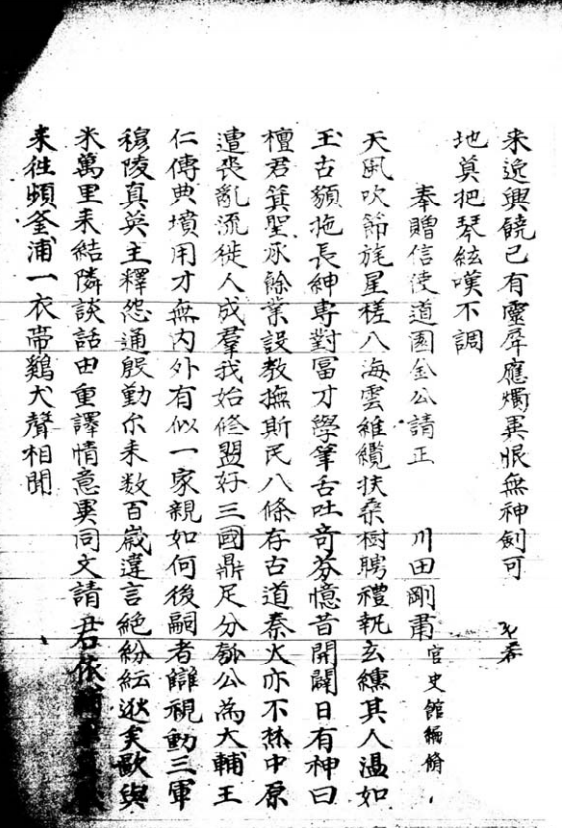 来逸興饒已有靈犀應燭異恨無神劍可
地莫把琴絃嘆不調
奉贈信使道園金公請正 川田剛肅官史館編脩
天風吹節旄星槎入海雲維纜扶桑樹聘禮執玄纁其人溫如
玉古貌拖長紳專對富才學筆舌吐奇芬憶昔開闢日有神曰
檀君箕聖承餘業設教撫斯民八條存古道秦火亦不焚中原
遭喪亂流徙人成羣我始修盟好三國鼎足分瓠公為大輔王
仁傳典墳用才無內外有似一家親如何後嗣者讎視動三軍
穆陵真英主釋怨通殷勤尓来数百歲違言絕紛紜逖矣歐與
米萬里来結隣談話由重譯情意異同文請君依
来往頻釜浦一衣帶鷄犬聲相聞